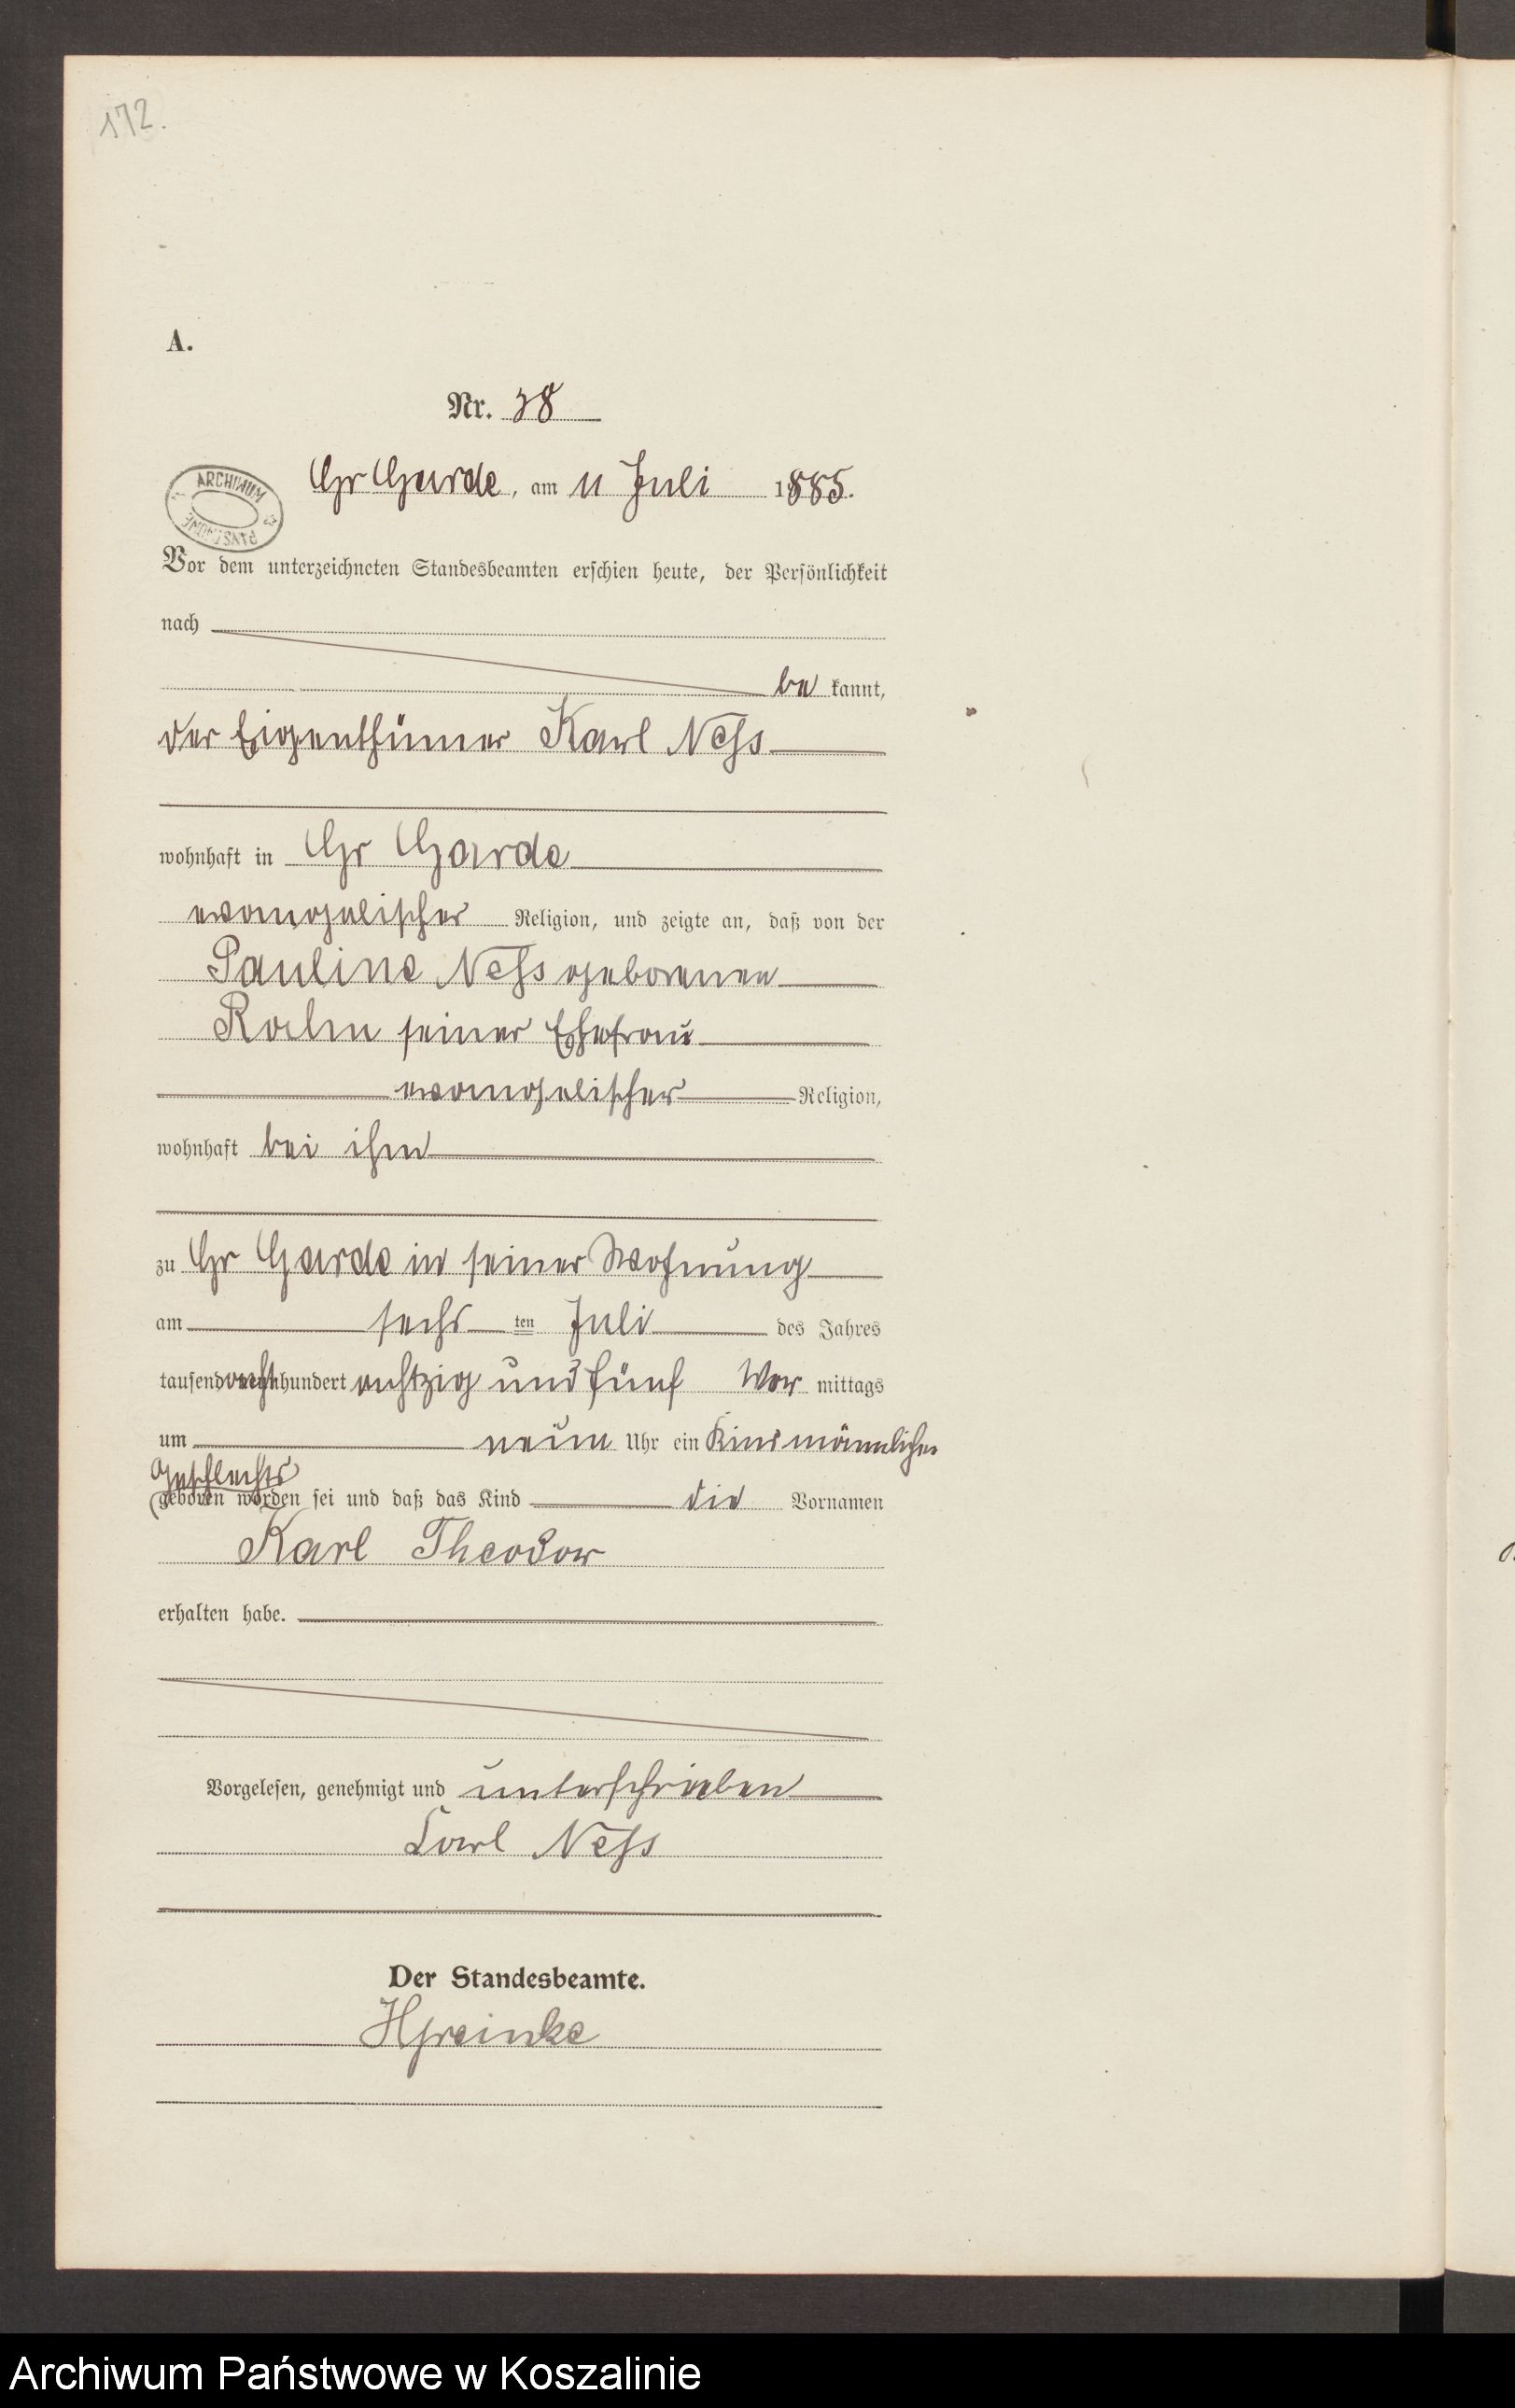 172.
A.
Nr. 38
ARCHIWUM PAŃSTWOWE
Gr Garde, am 11 Juli 1885.
Vor dem unterzeichneten Standesbeamten erschien heute, der Persönlichkeit
nach
be kannt,
der Eigenthümer Karl Ness
wohnhaft in Gr Garde
evangelischer Religion, und zeigte an, daß von der
Pauline Ness geborenen
seiner Ehefrau
evangelischer Religion,
wohnhaft bei ihm
zu Gr Garde in seiner Wohnung
am sechs ten Juli des Jahres
tausend acht hundert achtzig und fünf Vor mittags
um neun Uhr ein Kind männlichen
Geschlechts
geboren worden sei und daß das Kind die Vornamen
Karl Theodor
erhalten habe.
Vorgelesen, genehmigt und unterschrieben
Carl Ness
Der Standesbeamte.
Archiwum Państwowe w Koszalinie